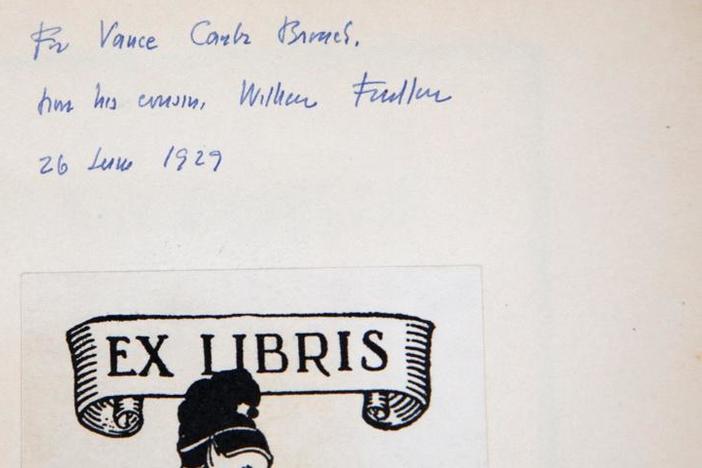 For Vance Carter Broach,
from his cousin, William Faulkner
26 June 1929
EX LIBRIS